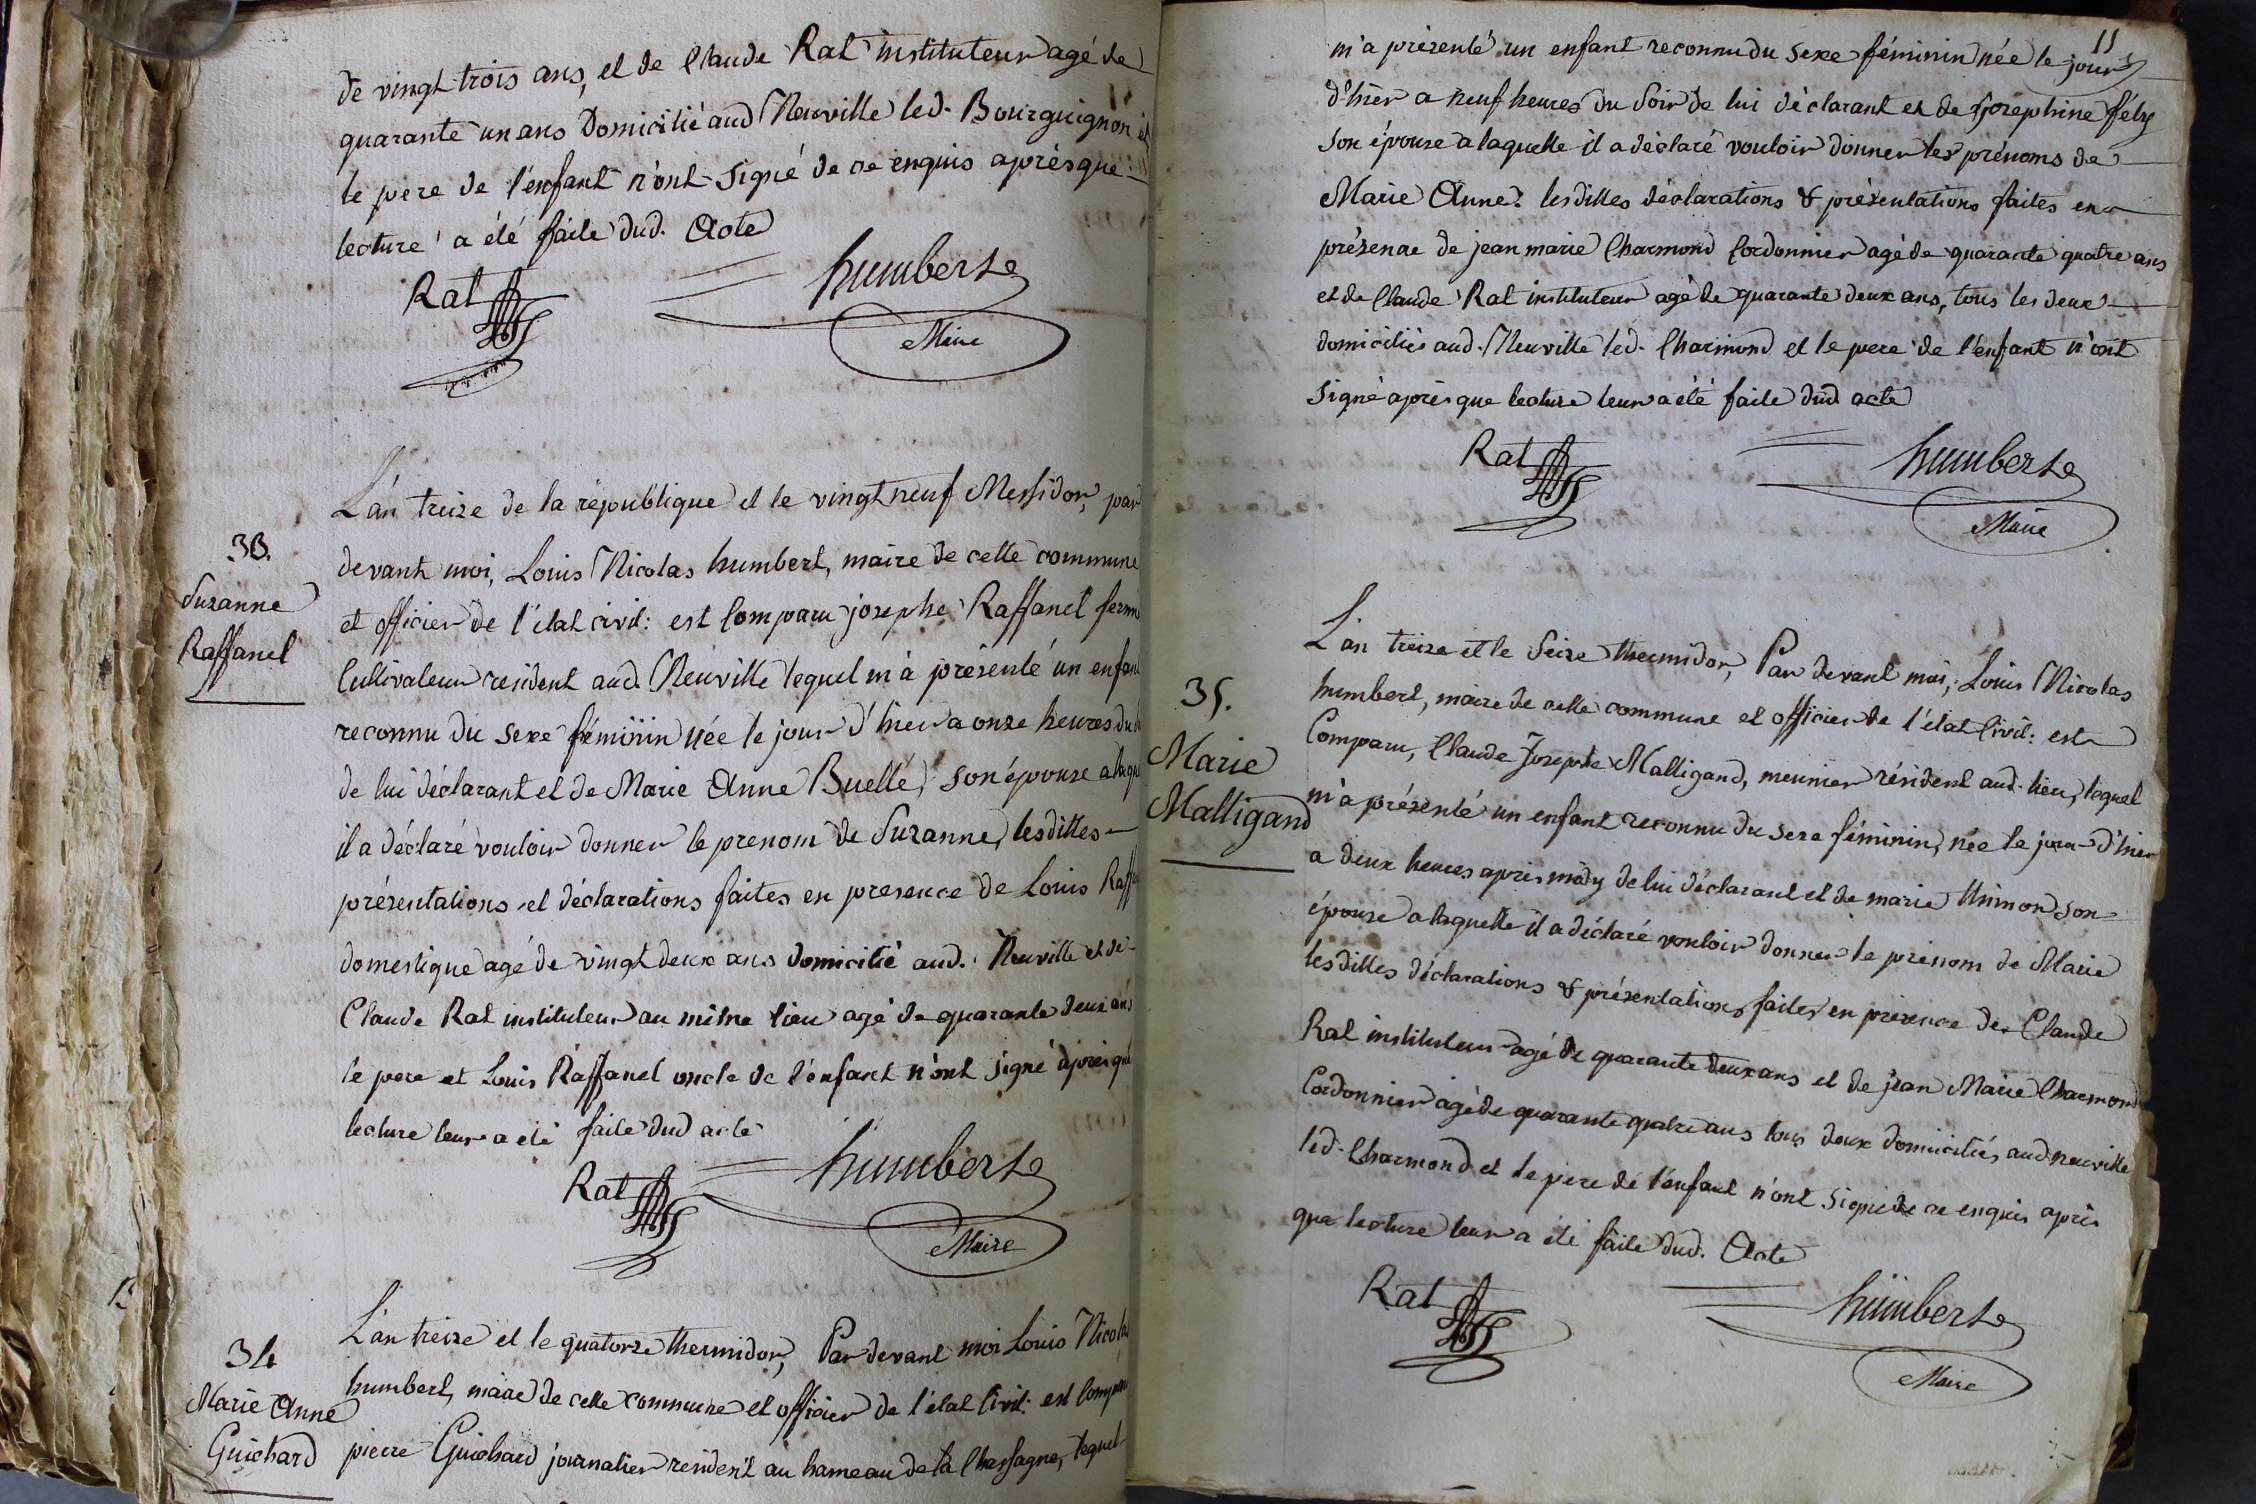 de vingt-trois ans, et de Claude Rat instituteur agé de
quarante un ans Domicilié aud Neuville led. Bourguignon et
le pere de l'enfant n'ont signé de ce enquis après que
lecture a été faite dud. Acte
Rat humbert
Maire
L'án treize de la république et le vingt neuf Messidor, par
33.
devant moi, Louis Nicolas humbert, maire de cette commune
Suzanne
et officier de l'état civil: est Comparu josephe Raffanel fermi
Raffanel
Cultivateur resident aud. Neuville lequel m'à présenté un enfant
reconnu du sexe féminin née le jour d'hier a onze heures du
de lui déclarant et de Marie Anne Buellé, son épouse a laqu
il a déclaré vouloir donner le prenom de Suzanne, lesdittes
présentations et déclarations faites en presence de Louis Raff
domestique agé de vingt deux ans domicilié aud. Neuville et de
Claude Rat instituteur au même lieu agé de quarante deux ans
le pere et Louis Raffanel oncle de l'enfant n'ont signé après que
lecture leur a été faite dud acte
Rat humbert
Maire
L'an treize et le quatorze thermidor, Par devant moi Louis Nicolas
34
humbert, maire de cette commune et officier de l'état Civil: est Comparu
Marie Anne
Guichard
pierre Guichard journalier resident au hameau de la Chassagne, lequel
11
m'a présenté un enfant reconnu du sexe féminin née le jour
d'hier a neuf heures du soir de lui déclarant et de Josephine féley
son épouse a laquelle il a déclaré vouloir donner les prénoms de
Marie Anne. lesdittes déclarations & présentations faites en
présence de jean marie Charmond Cordonnier agé de quarante quatre ans
et de Claude Rat instituteur agé de quarante deux ans, tous les deux
domiciliés aud. Neuville led. Charmond et le pere de l'enfant n'ont
signé après que lecture leur a été faite dud. acte
Rat humbert
Maire
L'an treize et le Seize thermidor, Par devant moi, Louis Nicolas
35.
humbert, maire de cette commune et officier de l'état Civil: est
Marie
Comparu, Claude Josephe Malligand, meunier résident aud. lieu, lequel
Malligand
m'a présenté un enfant reconnu du sexe féminin, née le jour d'hier
a deux heures après midy de lui déclarant et de marie Thimon son
épouse a laquelle il a déclaré vouloir donner le prénom de Marie
lesdittes déclarations & présentations faites en présence de Claude
Rat instituteur agé de quarante deux ans et de jean Marie Charmond
Cordonnier agé de quarante quatre ans tous deux domiciliés aud neuville
led. Charmond et le pere de l'enfant n'ont signé de ce enquis après
que lecture leur a été faite dud. Acte
Rat humbert
Maire